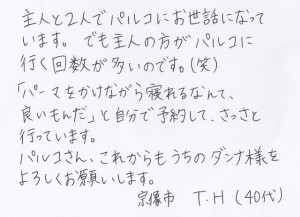 主人と2人でパルコにお世話になって
います。でも主人の方がパルコに
行く回数が多いのです。(笑)
「パーマをかけながら寝れるなんて、
良いもんだ」と自分で予約して、さっさと
行っています。
パルコさん、これからもうちのダンナ様を
よろしくお願いします。
宗像市 T.H (40代)